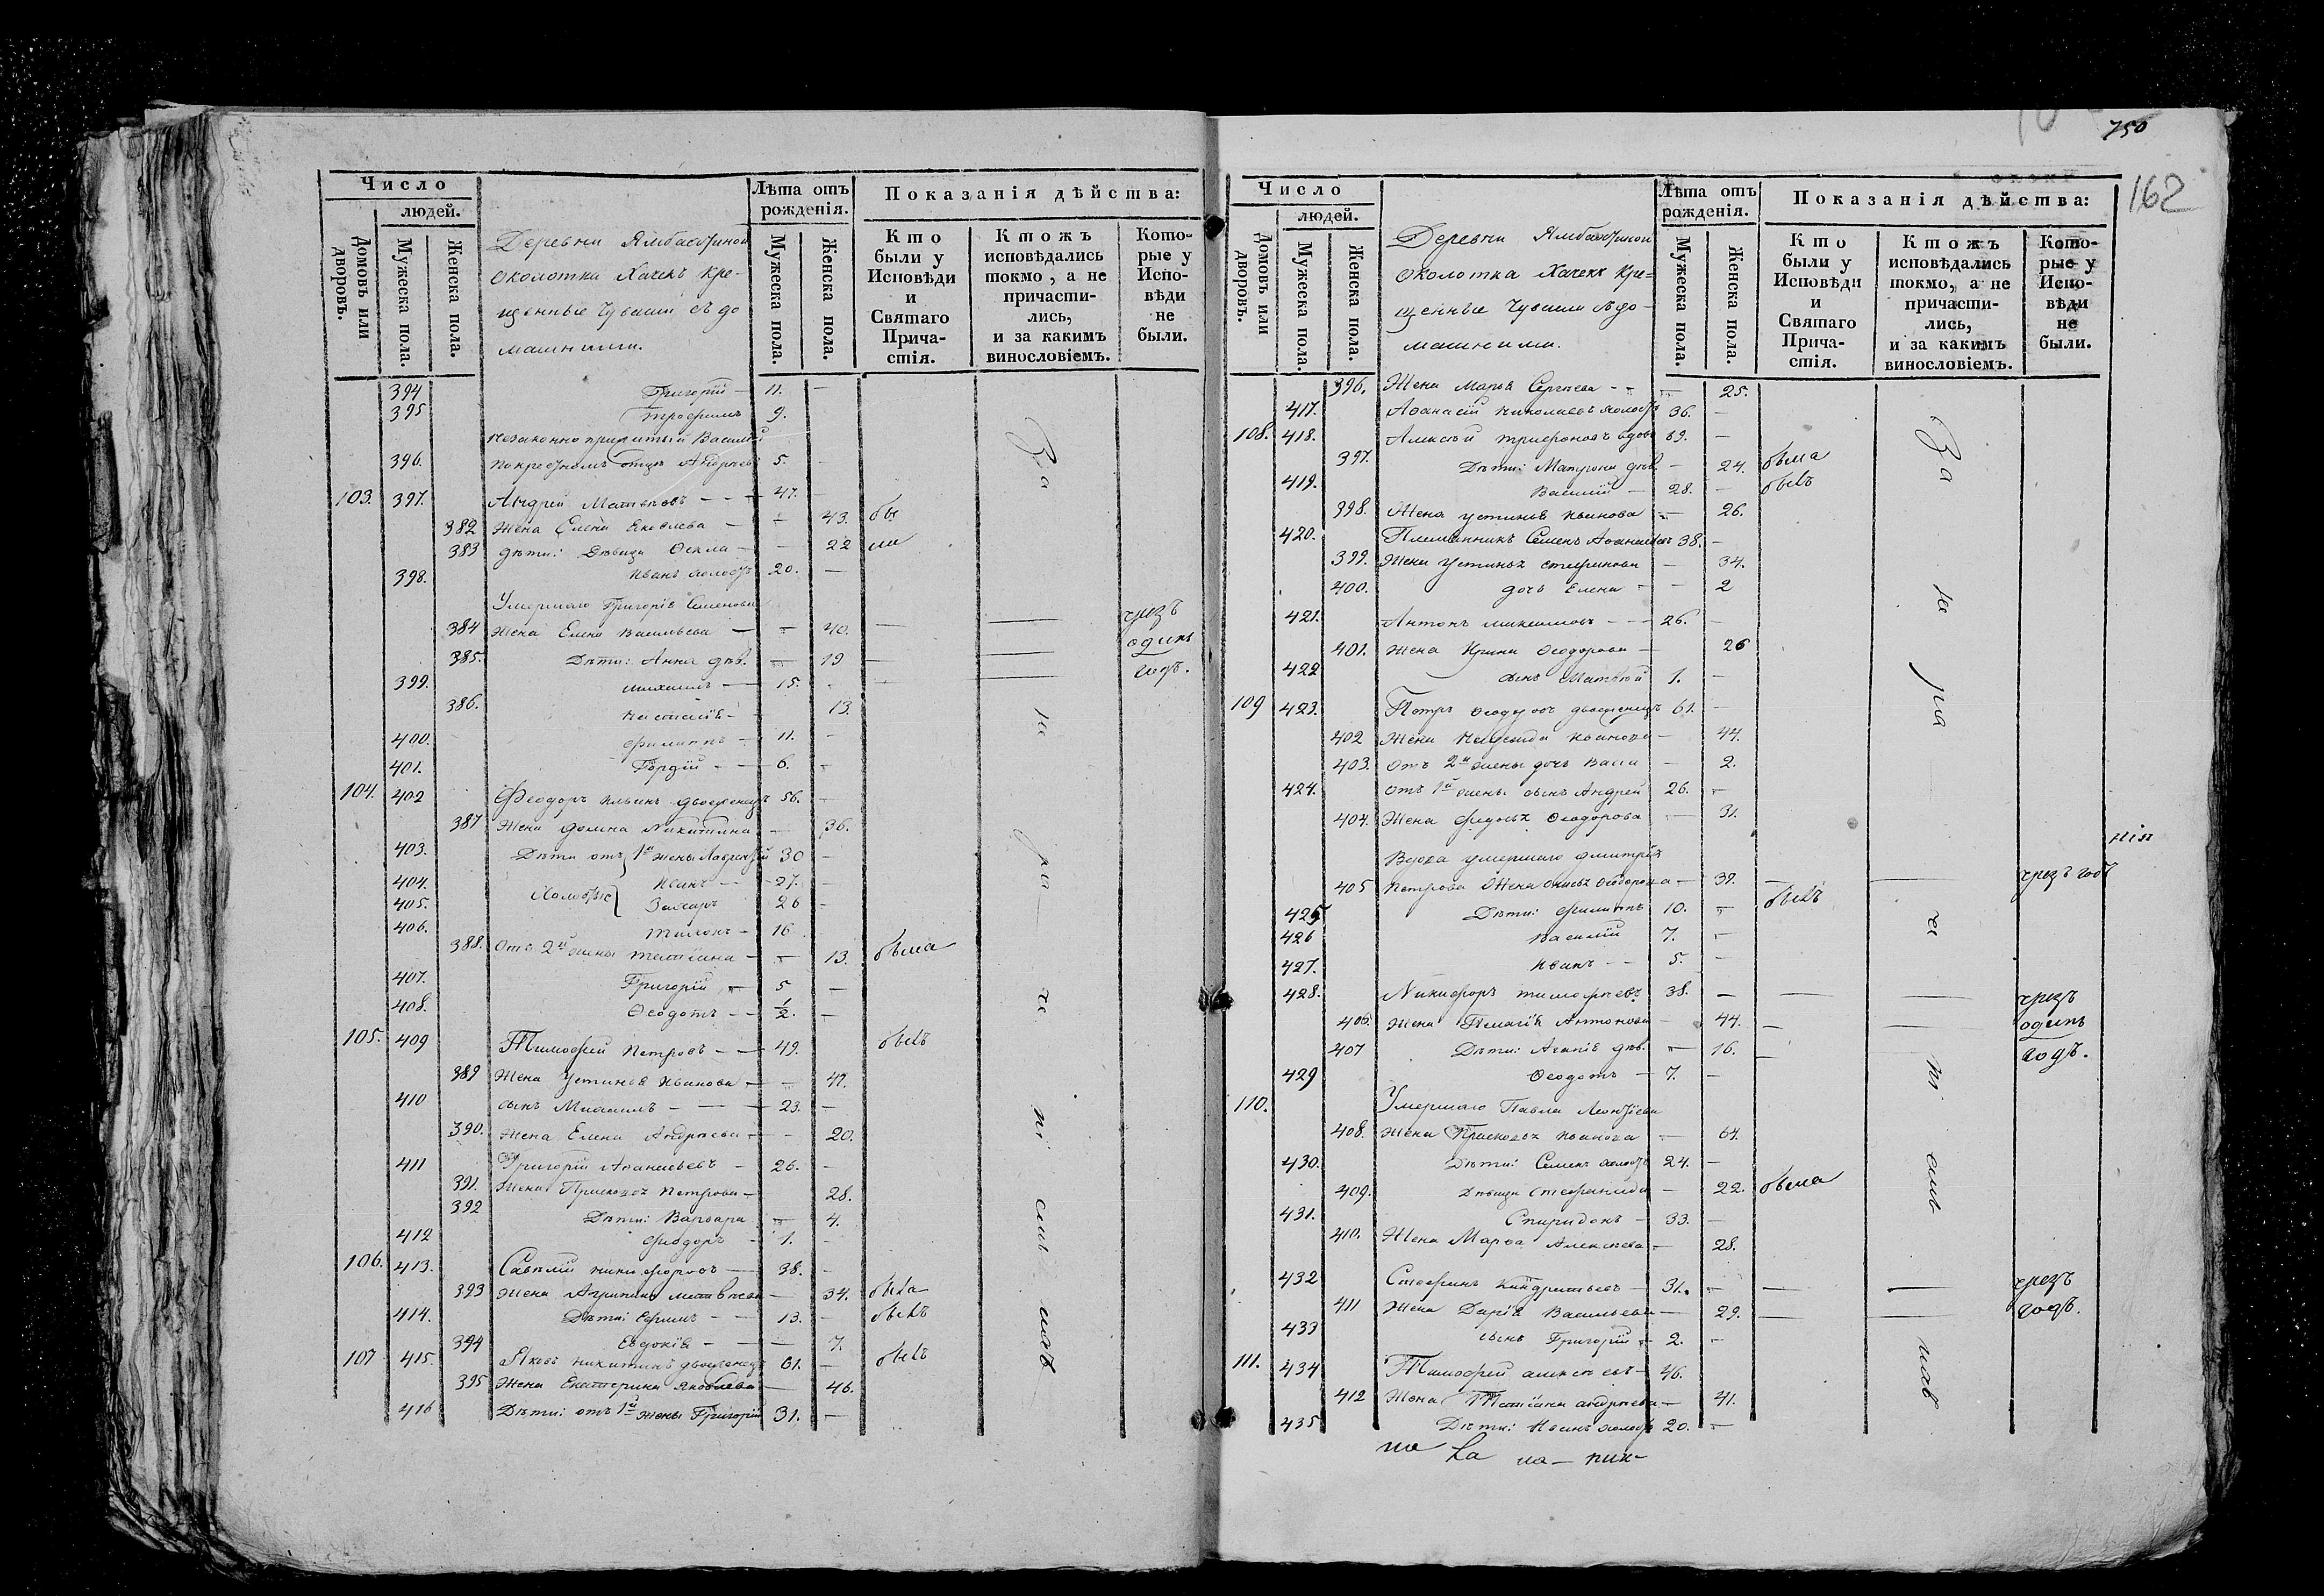 Число
людей.
Домовъ или дворовъ.
Мужеска пола.
Женска пола.
Деревни Ямбахтиной
околотка Хачекъ кре-
щенные Чуваши съ до
машними.
Лѣта отъ рожденія.
Мужеска пола.
Женска пола.
Показанія дѣйства:
Кто были у Исповѣди и Святаго Прича- стія.
Ктожъ исповѣдались токмо, а не причасти- лись, и за какимъ винословіемъ.
Кото- рые у Испо- вѣди не были.
394 Григорій — 11. —
395 Трофимъ 9.
незаконно прижитый Василій
396. по крестномъ отцѣ Андреевъ 5. -
103. 397. Андрей Матвѣевъ - - - 47. -
382 Жена Елена Яковлева — - 43. бы
383 Дѣти: Дѣвица Ѳекла — - 22 ли
398. Иванъ холостъ 20. —
Умершаго Григорія Семенова
384 жена Елена Васильева — - 40. — — чрезъ
385. Дѣти: Анна дѣв. - 19 — — одинъ
399. Михаилъ — 15. - — — годъ.
386. Настасія - 13.
400. Филиппъ - 11. -
401. Гордій - - 6. -
104. 402 Феодоръ Ильинъ двоеженецъ 56. -
387 Жена Домна Никитина — 36.
403. Дѣти отъ 1й жены Лаврентій 30 -
404. Холостые Иванъ - 27. -
405. Захаръ 26 -
406. Тихонъ - 16
388. Отъ 2й жены Татіана - - 13. была
407. Григорій - 5 —
408. Ѳеодотъ - - 1/2. -
105. 409 Тимофей Петровъ - — 49. былъ
389 Жена Устинья Иванова - - 47.
410 сынъ Михаилъ - — - 23. —
390. Жена Елена Андреева - - 20.
411 Григорій Аѳанасьевъ - 26. -
391. Жена Прасковья Петрова - 28.
392 Дѣти: Варвара - 4.
412 Феодоръ - 1. -
106. 413. Савелій Никифоровъ — 38. -
393 Жена Агрипина Матвѣева — 34. была
414. Дѣти: Ефимъ - - 13. - былъ
394 Евдокія - — 7.
107 415. Яковъ Никитинъ двоеженецъ 61. — былъ
395 Жена Екатерина Яковлева — 46.
416 Дѣти: отъ 1й жены Григорій 31. —
За не ра че ні емъ
750
162
Число
людей.
Домовъ или дворовъ.
Мужеска пола.
Женска пола.
Деревни Ямбахтиной
околотка Хачекъ кре=
щенные Чуваши съ до-
машними.
Лѣта отъ рожденія.
Мужеска пола.
Женска пола.
Показанія дѣйства:
Кто были у Исповѣди и Святаго Прича- стія.
Ктожъ исповѣдались токмо, а не причасти- лись, и за какимъ винословіемъ.
Кото- рые у Испо- вѣди не были.
396. Жена Марья Сергѣева - - - 25.
417. Аѳанасій Николаевъ холостъ 36. -
108. 418. Алексѣй Трифоновъ вдовъ 69. -
397. Дѣти: Матрона дѣв. - 24. была
419. Василій — 28. - былъ
398. Жена Устинья Иванова - 26.
420. Племянникъ Семенъ Аѳанасьевъ 38. -
399. Жена Устинья Стефанова — 34.
400. дочь Елена - - 2
421. Антонъ - - - 26. -
401. Жена Ирина Ѳеодорова — 26
422 сынъ Матвѣй 1. -
109 423. Петръ Ѳеодоровъ двоеженецъ 61. -
402 Жена Надежда Иванова — 44.
403. Отъ 2й жены дочь Васса — 2.
424. отъ 1й жены сынъ Андрей 26. -
404. Жена Федосья Ѳеодорова - 31.
Вдова умершаго Дмитрія
405 Петрова жена Ѳеодорова — 39. — — чрезъ годъ
425 Дѣти: Филиппъ 10. - былъ
426 Василій 7. -
427. Иванъ - - 5. -
428. Никифоръ Тимофеевъ 38. — — — чрезъ
406. Жена Пелагія Антонова — 44. — — одинъ
407 Дѣти: дѣв. - 16. — годъ.
429 Ѳеодотъ - 7. -
110. Умершаго Павла Леонтіева
408. жена Прасковья Иванова - 64.
430. Дѣти: Семенъ холостъ 24. —
409. Дѣвица Стефанида - 22. была
431. Спиридонъ - 33. —
410. Жена Марѳа Алексѣева - 28.
432 Стефанъ Кондратьевъ - 31. - — — чрезъ
411 Жена Дарія Васильева — 29. — — годъ.
433 сынъ Григорій - 2. -
111. 434 Тимофей Алексѣевъ - 46.
412 Жена Татіана Андреева — 41.
435 Дѣти: Иванъ холостъ 20. -
За не ра че ні емъ